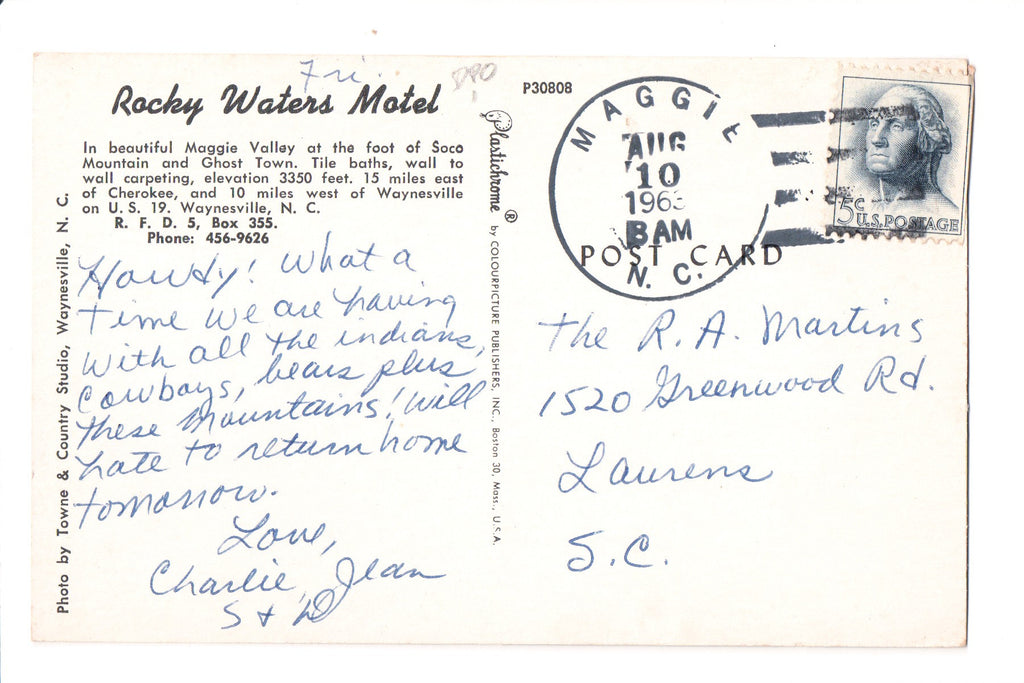 Fri.
DPO
Rocky Waters Motel
In beautiful Maggie Valley at the foot of Soco
Mountain and Ghost Town. Tile baths, wall to
wall carpeting, elevation 3350 feet. 15 miles east
of Cherokee, and 10 miles west of Waynesville
on U. S. 19. Waynesville, N. C.
R. F. D. 5, Box 355.
Phone: 456-9626
Howdy! What a
time we are having
with all the indians,
Cowboys, bears plus
these mountains! Will
hate to return home
tomorrow.
Love,
Charlie, Jean
S + D
Photo by Towne & Country Studio, Waynesville, N. C.
Plastichrome ® by COLOURPICTURE PUBLISHERS, INC., Boston 30, Mass., U.S.A.
P30808
MAGGIE
AUG
10
196
8 AM
N. C.
5c
U.S. POSTAGE
POST CARD
The R. A. Martins
1520 Greenwood Rd.
Laurens
S.C.